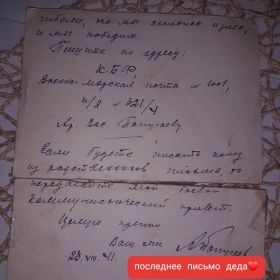 гибели, но мы сильны и
и мы победим.
Пишите по адресу:
КБФ,
Военно-Морская почта № 1001,
п/я № 321/
Ар. Вас
Если будете писать кому
из родственников письма, то
передавайте мой боевой
коммунистический привет.
Целую крепко
Ваш
23.VIII.41.
последнее письмо деда❤️